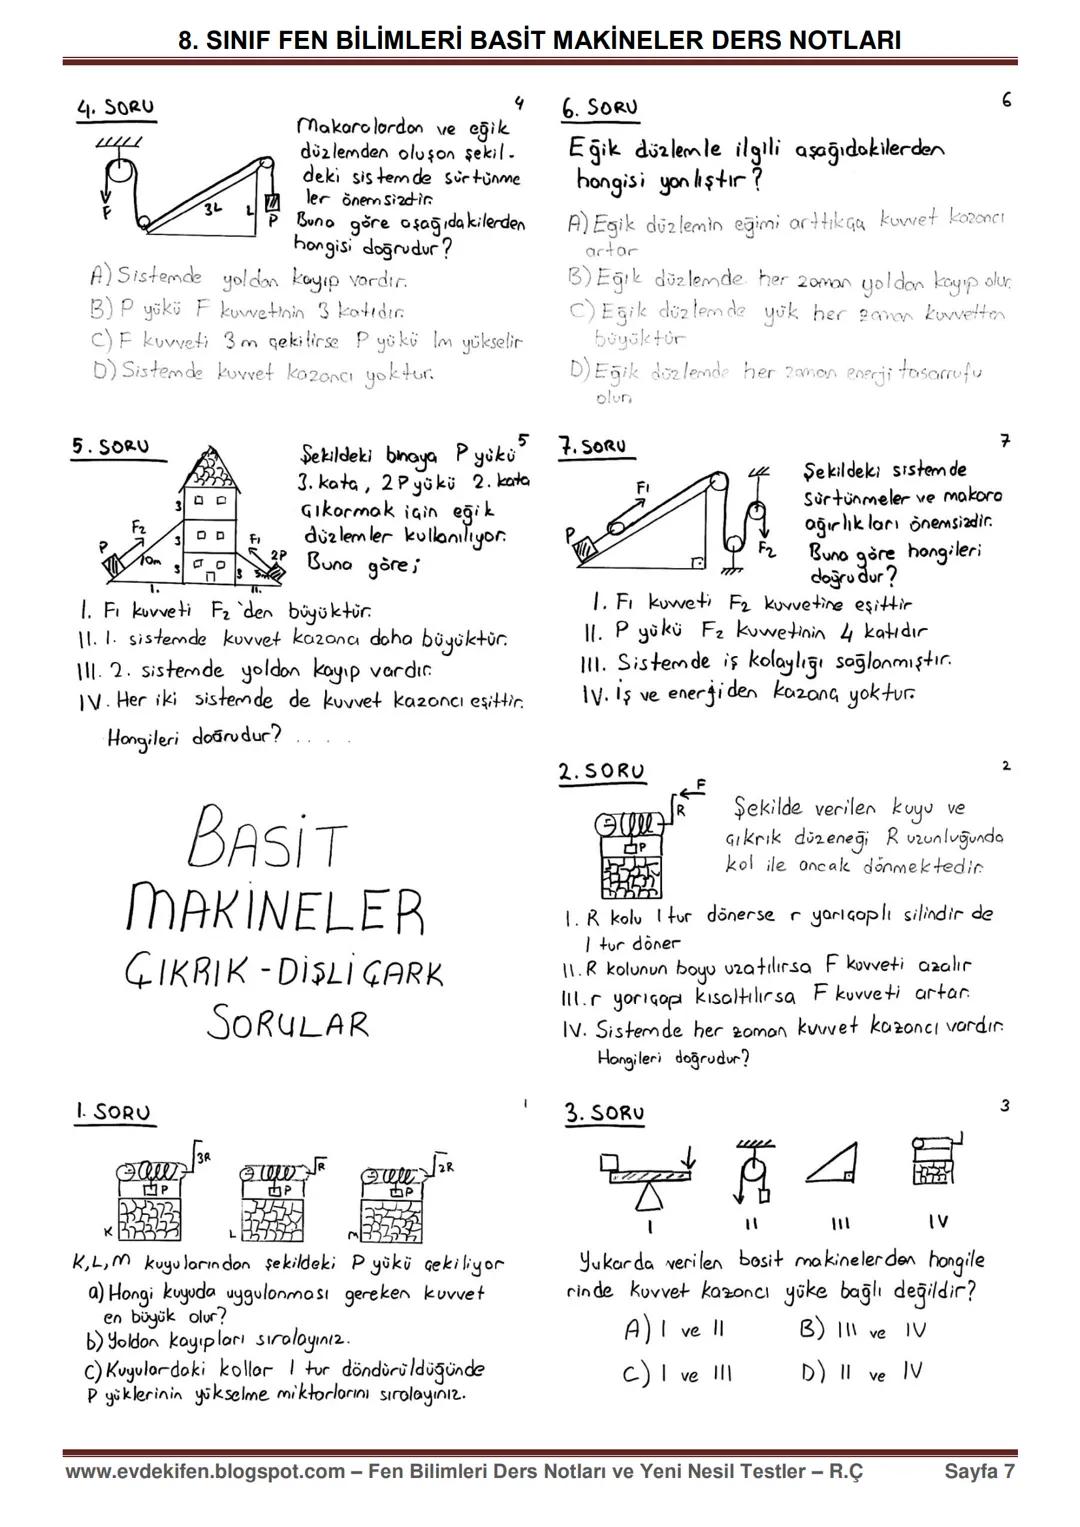 8. SINIF FEN BİLİMLERİ BASİT MAKİNELER DERS NOTLARI
4. SORU
4
Makaralardan ve eğik
düzlemden oluşan şekil-
deki sistemde sürtünme
ler önemsizdir.
Buna göre aşağıdakilerden
hangisi doğrudur?
F
3L
L
P
A) Sistemde yoldan kayıp vardır.
B) P yükü F kuvvetinin 3 katıdır.
C) F kuvveti 3m çekilirse P yükü 1m yükselir
D) Sistemde kuvvet kazancı yoktur.
5. SORU
5
Şekildeki binaya P yükü
3. kata, 2P yükü 2. kata
çıkarmak için eğik
düzlemler kullanılıyor.
Buna göre;
P
F2
10m
3
3
3
3
F1
2P
5m
I.
II.
I. F1 kuvveti F2'den büyüktür.
II. 1. sistemde kuvvet kazancı daha büyüktür.
III. 2. sistemde yoldan kayıp vardır.
IV. Her iki sistemde de kuvvet kazancı eşittir.
Hangileri doğrudur? .....
BASİT
MAKİNELER
ÇIKRIK - DİŞLİ ÇARK
SORULAR
1. SORU
1
3R
R
2R
P
P
P
K
L
M
K, L, M kuyularından şekildeki P yükü çekiliyor
a) Hangi kuyuda uygulanması gereken kuvvet
en büyük olur?
b) Yoldan kayıpları sıralayınız.
c) Kuyulardaki kollar 1 tur döndürüldüğünde
P yüklerinin yükselme miktarlarını sıralayınız.
6. SORU
6
Eğik düzlemle ilgili aşağıdakilerden
hangisi yanlıştır?
A) Eğik düzlemin eğimi arttıkça kuvvet kazancı
artar
B) Eğik düzlemde her zaman yoldan kayıp olur.
C) Eğik düzlemde yük her zaman kuvvetten
büyüktür
D) Eğik düzlemde her zaman enerji tasarrufu
olur.
7. SORU
7
Şekildeki sistemde
Sürtünmeler ve makara
ağırlıkları önemsizdir.
Buna göre hangileri
doğrudur?
P
F1
F2
I. F1 kuvveti F2 kuvvetine eşittir
II. P yükü F2 kuvvetinin 4 katıdır
III. Sistemde iş kolaylığı sağlanmıştır.
IV. İş ve enerjiden kazanç yoktur.
2. SORU
2
F
R
P
Şekilde verilen kuyu ve
çıkrık düzeneği R uzunluğunda
kol ile ancak dönmektedir.
I. R kolu 1 tur dönerse r yarıçaplı silindir de
1 tur döner
II. R kolunun boyu uzatılırsa F kuvveti azalır
III. r yarıçapı kısaltılırsa F kuvveti artar.
IV. Sistemde her zaman kuvvet kazancı vardır.
Hangileri doğrudur?
3. SORU
3
I
II
III
IV
Yukarda verilen basit makinelerden hangile
rinde kuvvet kazancı yüke bağlı değildir?
A) I ve II
B) III ve IV
C) I ve III
D) II ve IV
www.evdekifen.blogspot.com – Fen Bilimleri Ders Notları ve Yeni Nesil Testler – R.Ç
Sayfa 7